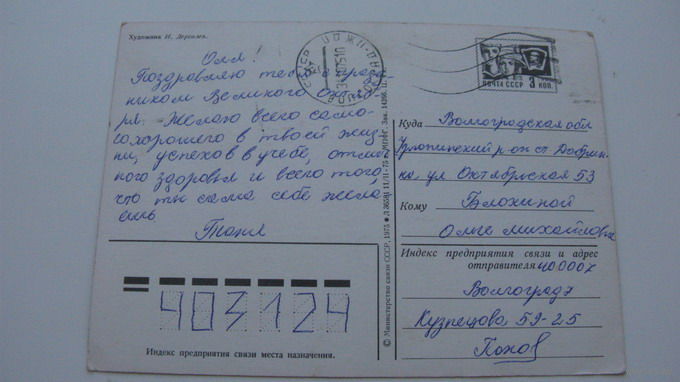 Художник И. Дергилев.
Оля!
Поздравляю тебя с празд-
ником Великого Октяб-
ря. Желаю всего само-
го хорошего в твоей жиз-
ни, успехов в учебе, отлич-
ного здоровья и всего того,
что ты сама себе жела-
ешь.
Таня
ПОЧТА СССР 3 КОП.
Куда Волгоградская обл
Урюпинский р-он ст Добрин-
ка ул Октябрьская 53
Кому Блохиной
Ольге Михайловне
Индекс предприятия связи и адрес
отправителя 400007
Волгоград
Кузнецова 59-25
403124
Индекс предприятия связи места назначения.
© Министерство связи СССР, 1975